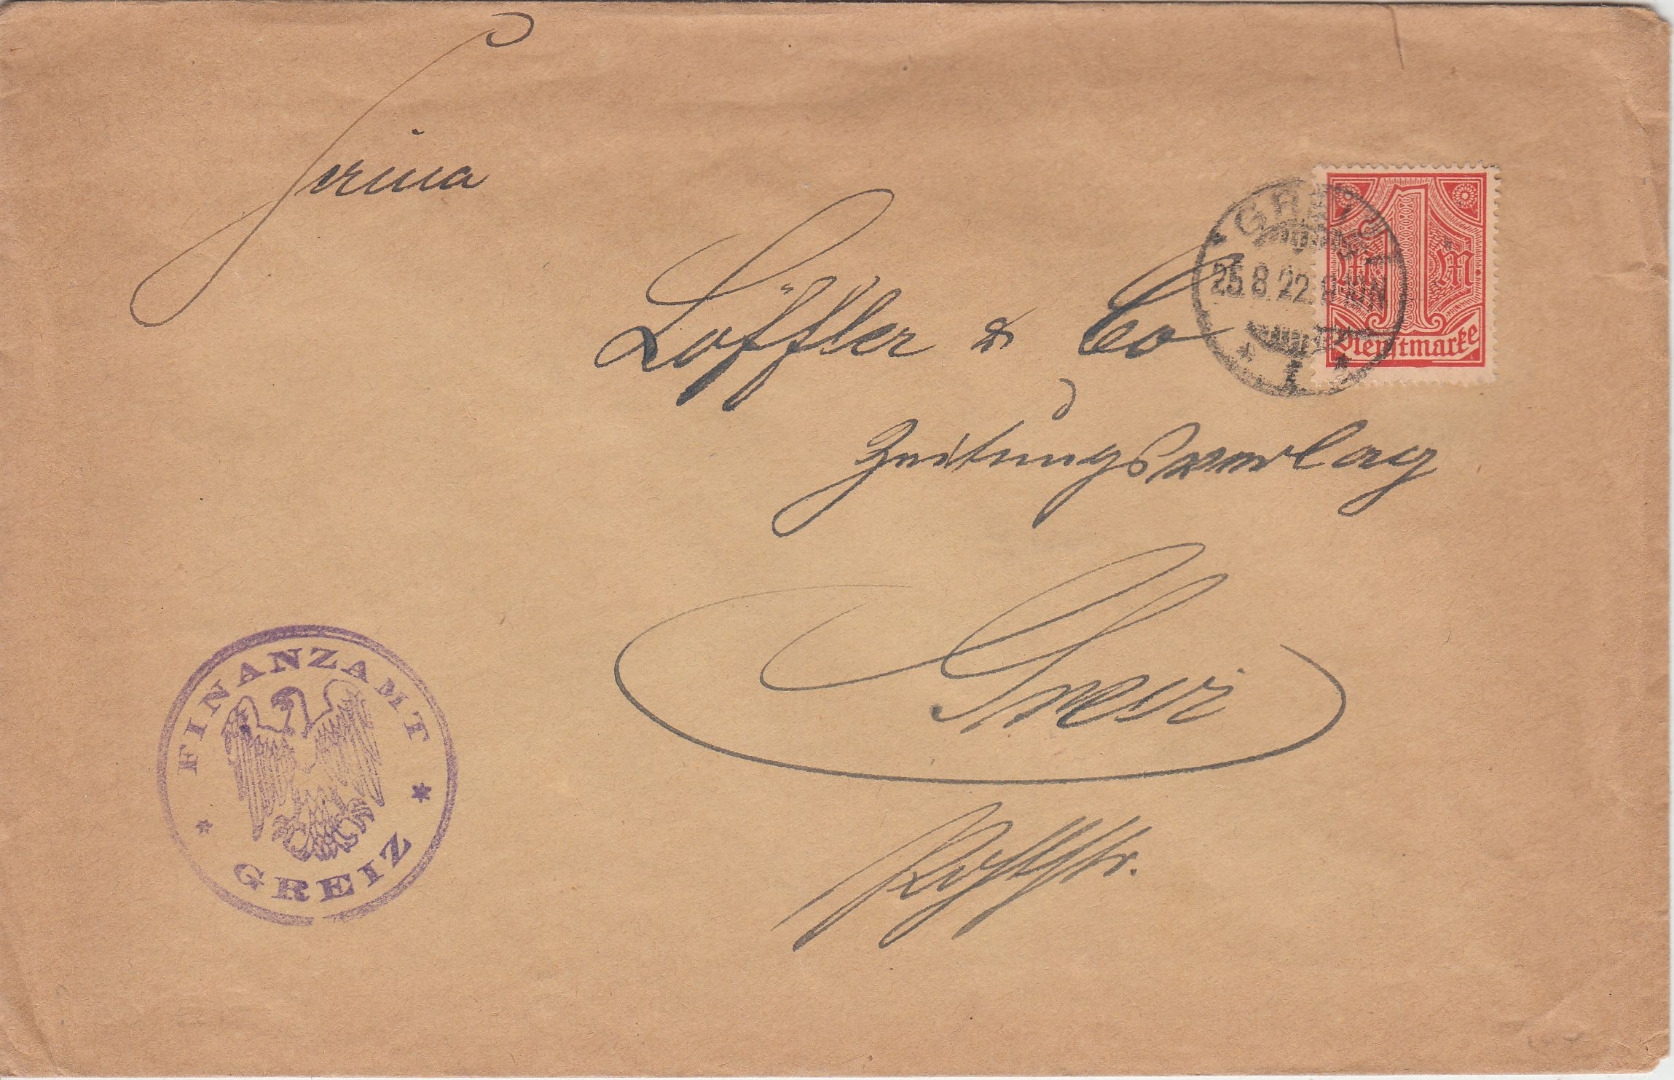 Firma
Löffler & Co
Zeitungsverlag
Greiz
Poststr.
GREIZ
25.8.22.
1
1
M M
Dienstmarke
FINANZAMT
GREIZ